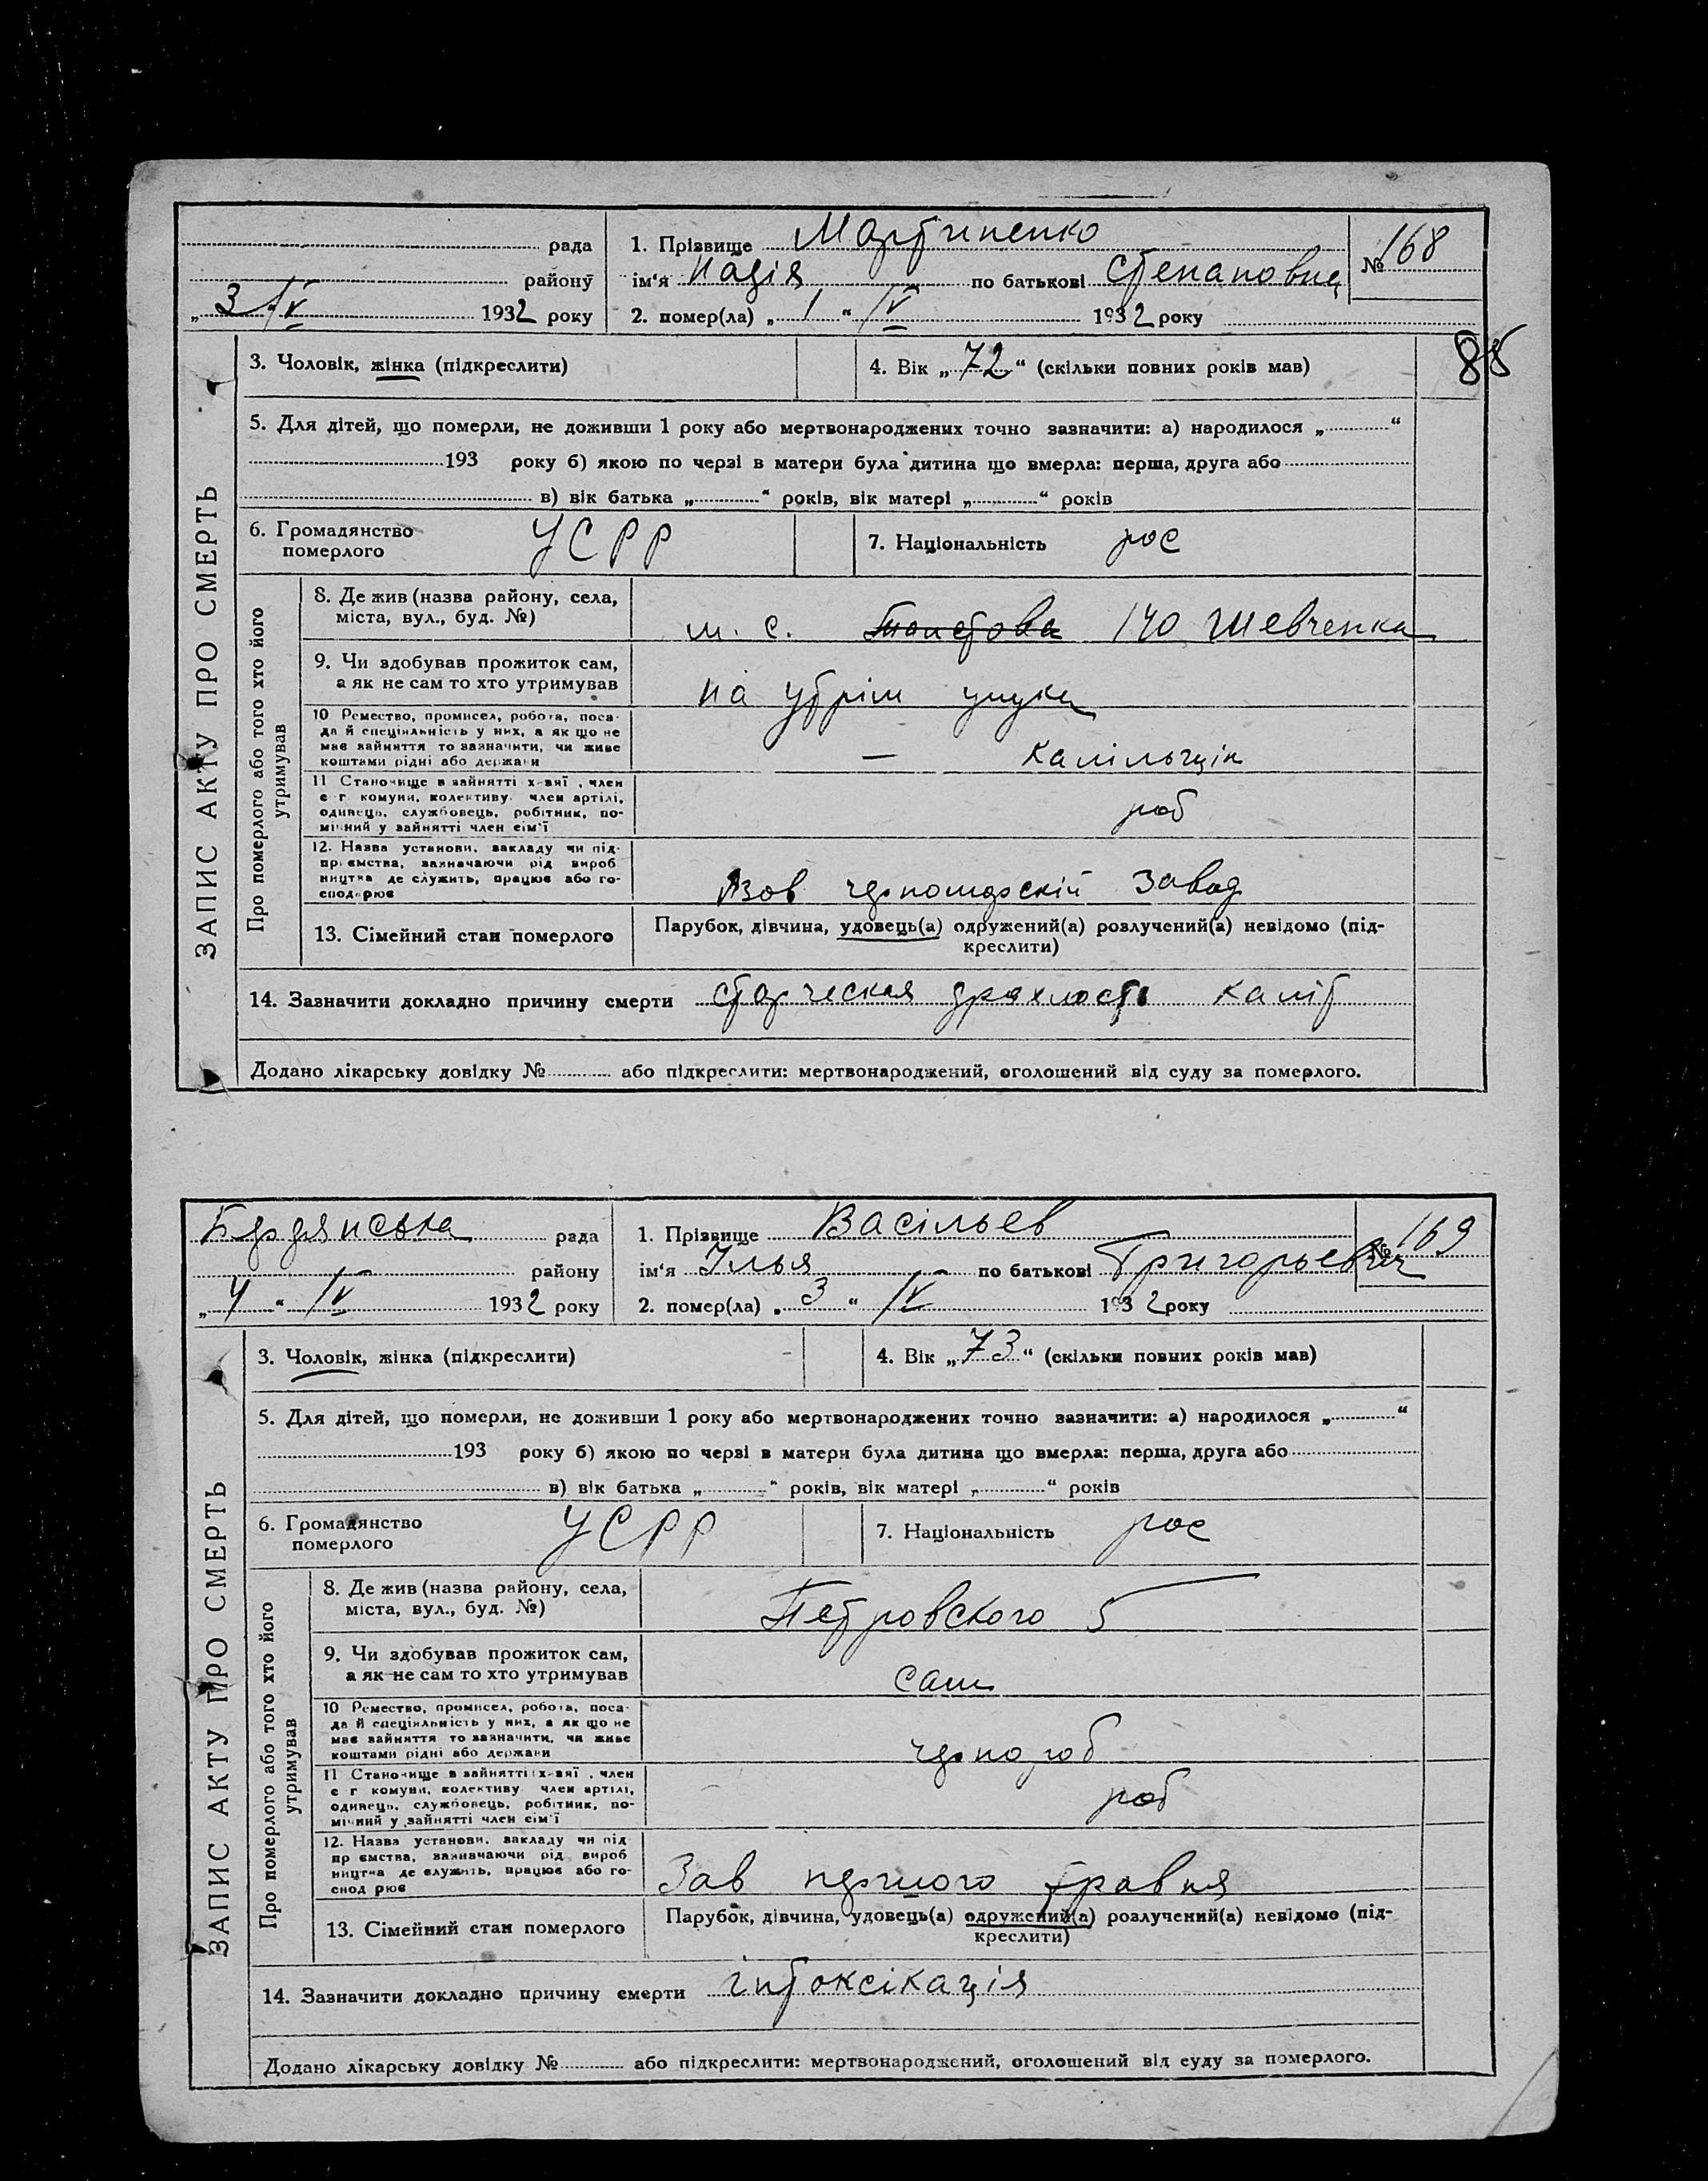 рада
району
„ 3 „ IV 1932 року
1. Прізвище Мартиненко
ім‘я Надія по батькові Степановна
2. помер(ла) „ 1 “ IV 1932 року
№ 168
88
ЗАПИС АКТУ ПРО СМЕРТЬ
3. Чоловік, жінка (підкреслити)
4. Вік „ 72 “ (скільки повних років мав)
5. Для дітей, що померли, не доживши 1 року або мертвонароджених точно зазначити: а) народилося „ “
193 року б) якою по черзі в матери була дитина що вмерла: перша, друга або
в) вік батька „ “ років, вік матері „ “ років
6. Громадянство
померлого УСРР
7. Національність рос
Про померлого або того хто його
утримував
8. Де жив (назва району, села,
міста, вул., буд. №)
м. с. 140 Шевченка
9. Чи здобував прожиток сам,
а як не сам то хто утримував
на утрім унука
10 Ремество, промисел, робота, поса-
да й спеціяльність у них, а як що не
має зайняття то зазначити, чи живе
коштами рідні або держави
—
11 Становище в зайнятті х-вяї, член
с-г комуни, колективу член артілі,
одинець, службовець, робітник, по-
мічний у зайнятті член сім‘ї
роб
12. Назва установи, закладу чи під-
приємства, зазначаючи рід вироб
ництва де служить, працює або го-
сподарює
Азов черноморскій завод
13. Сімейний стан померлого
Парубок, дівчина, удовець(а) одружений(а) розлучений(а) невідомо (під-
креслити)
14. Зазначити докладно причину смерти старческая дряхлость
Додано лікарську довідку № або підкреслити: мертвонароджений, оголошений від суду за померлого.
Бердянська рада
району
„ 4 “ IV 1932 року
1. Прізвище Васільев
ім‘я Ілья по батькові Григорьевич
2. помер(ла) „ 3 “ IV 1932 року
№ 169
ЗАПИС АКТУ ПРО СМЕРТЬ
3. Чоловік, жінка (підкреслити)
4. Вік „ 73 “ (скільки повних років мав)
5. Для дітей, що померли, не доживши 1 року або мертвонароджених точно зазначити: а) народилося „ “
193 року б) якою по черзі в матери була дитина що вмерла: перша, друга або
в) вік батька „ “ років, вік матері „ “ років
6. Громадянство
померлого УСРР
7. Національність рос
Про померлого або того хто його
утримував
8. Де жив (назва району, села,
міста, вул., буд. №)
Петровского 5
9. Чи здобував прожиток сам,
а як не сам то хто утримував
сам
10 Ремество, промисел, робота, поса-
да й спеціяльність у них, а як що не
має зайняття то зазначити, чи живе
коштами рідні або держави
чернороб
11 Становище в зайнятті х-вяї, член
с-г комуни, колективу член артілі,
одинець, службовець, робітник, по-
мічний у зайнятті член сім‘ї
роб
12. Назва установи, закладу чи під
приємства, зазначаючи рід вироб
ництва де служить, працює або го-
сподарює
Зав першого травня
13. Сімейний стан померлого
Парубок, дівчина, удовець(а) одружений(а) розлучений(а) невідомо (під-
креслити)
14. Зазначити докладно причину смерти інтоксікація
Додано лікарську довідку № або підкреслити: мертвонароджений, оголошений від суду за померлого.